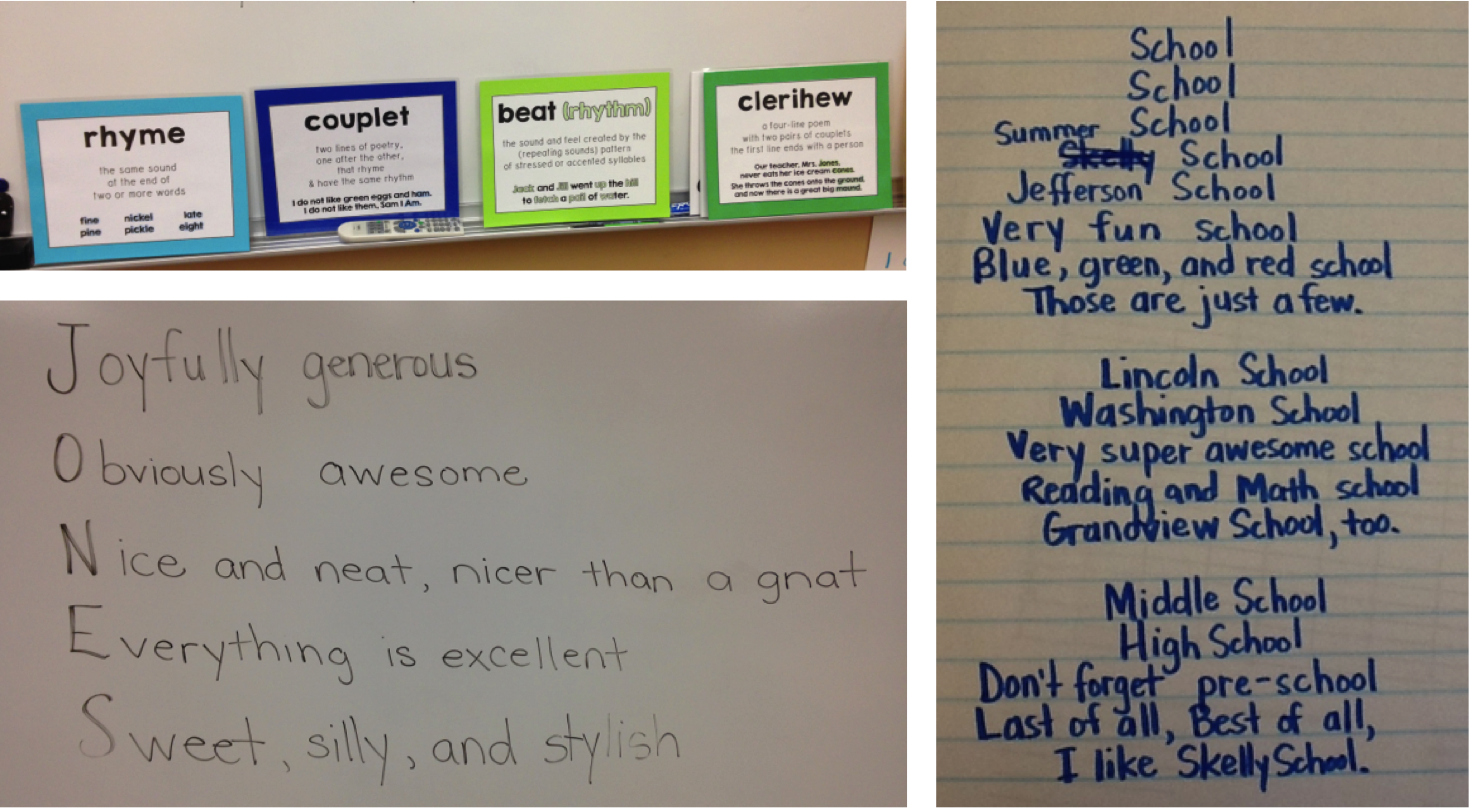 rhyme
the same sound
at the end of
two or more words
fine nickel late
pine pickle eight
couplet
two lines of poetry,
one after the other,
that rhyme
& have the same rhythm
I do not like green eggs and ham.
I do not like them, Sam I Am.
beat (rhythm)
the sound and feel created by the
(repeating sounds) pattern
of stressed or accented syllables
Jack and Jill went up the hill
to fetch a pail of water.
clerihew
a four-line poem
with two pairs of couplets
the first line ends with a person
Our teacher, Mrs. Jones,
never eats her ice cream cones.
She throws the cones onto the ground,
and now there is a great big mound.
Joyfully generous
Obviously awesome
Nice and neat, nicer than a gnat
Everything is excellent
Sweet, silly, and stylish
School
School
School
Summer School
Jefferson School
Very fun school
Blue, green, and red school
Those are just a few.
Lincoln School
Washington School
Very super awesome school
Reading and Math school
Grandview School, too.
Middle School
High School
Don't forget pre-school
Last of all, Best of all,
I like Skelly School.